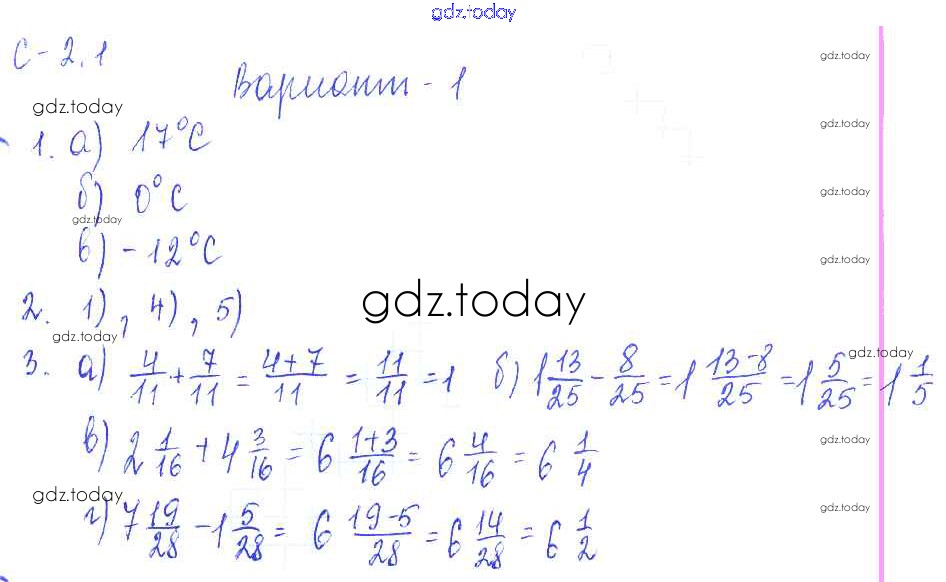 gdz.today
С-2.1
gdz.today
Вариант - 1
gdz.today
gdz.today
1. а) 17°С
б) 0°С
gdz.today
gdz.today
в) -12°С
gdz.today
2. 1), 4), 5)
gdz.today
gdz.today
gdz.today
3. а) 4/11 + 7/11 = 4+7/11 = 11/11 = 1 б) 1 13/25 - 8/25 = 1 13-8/25 = 1 5/25 = 1 1/5
в) 2 1/16 + 4 3/16 = 6 1+3/16 = 6 4/16 = 6 1/4
gdz.today
gdz.today
г) 7 19/28 - 1 5/28 = 6 19-5/28 = 6 14/28 = 6 1/2
gdz.today